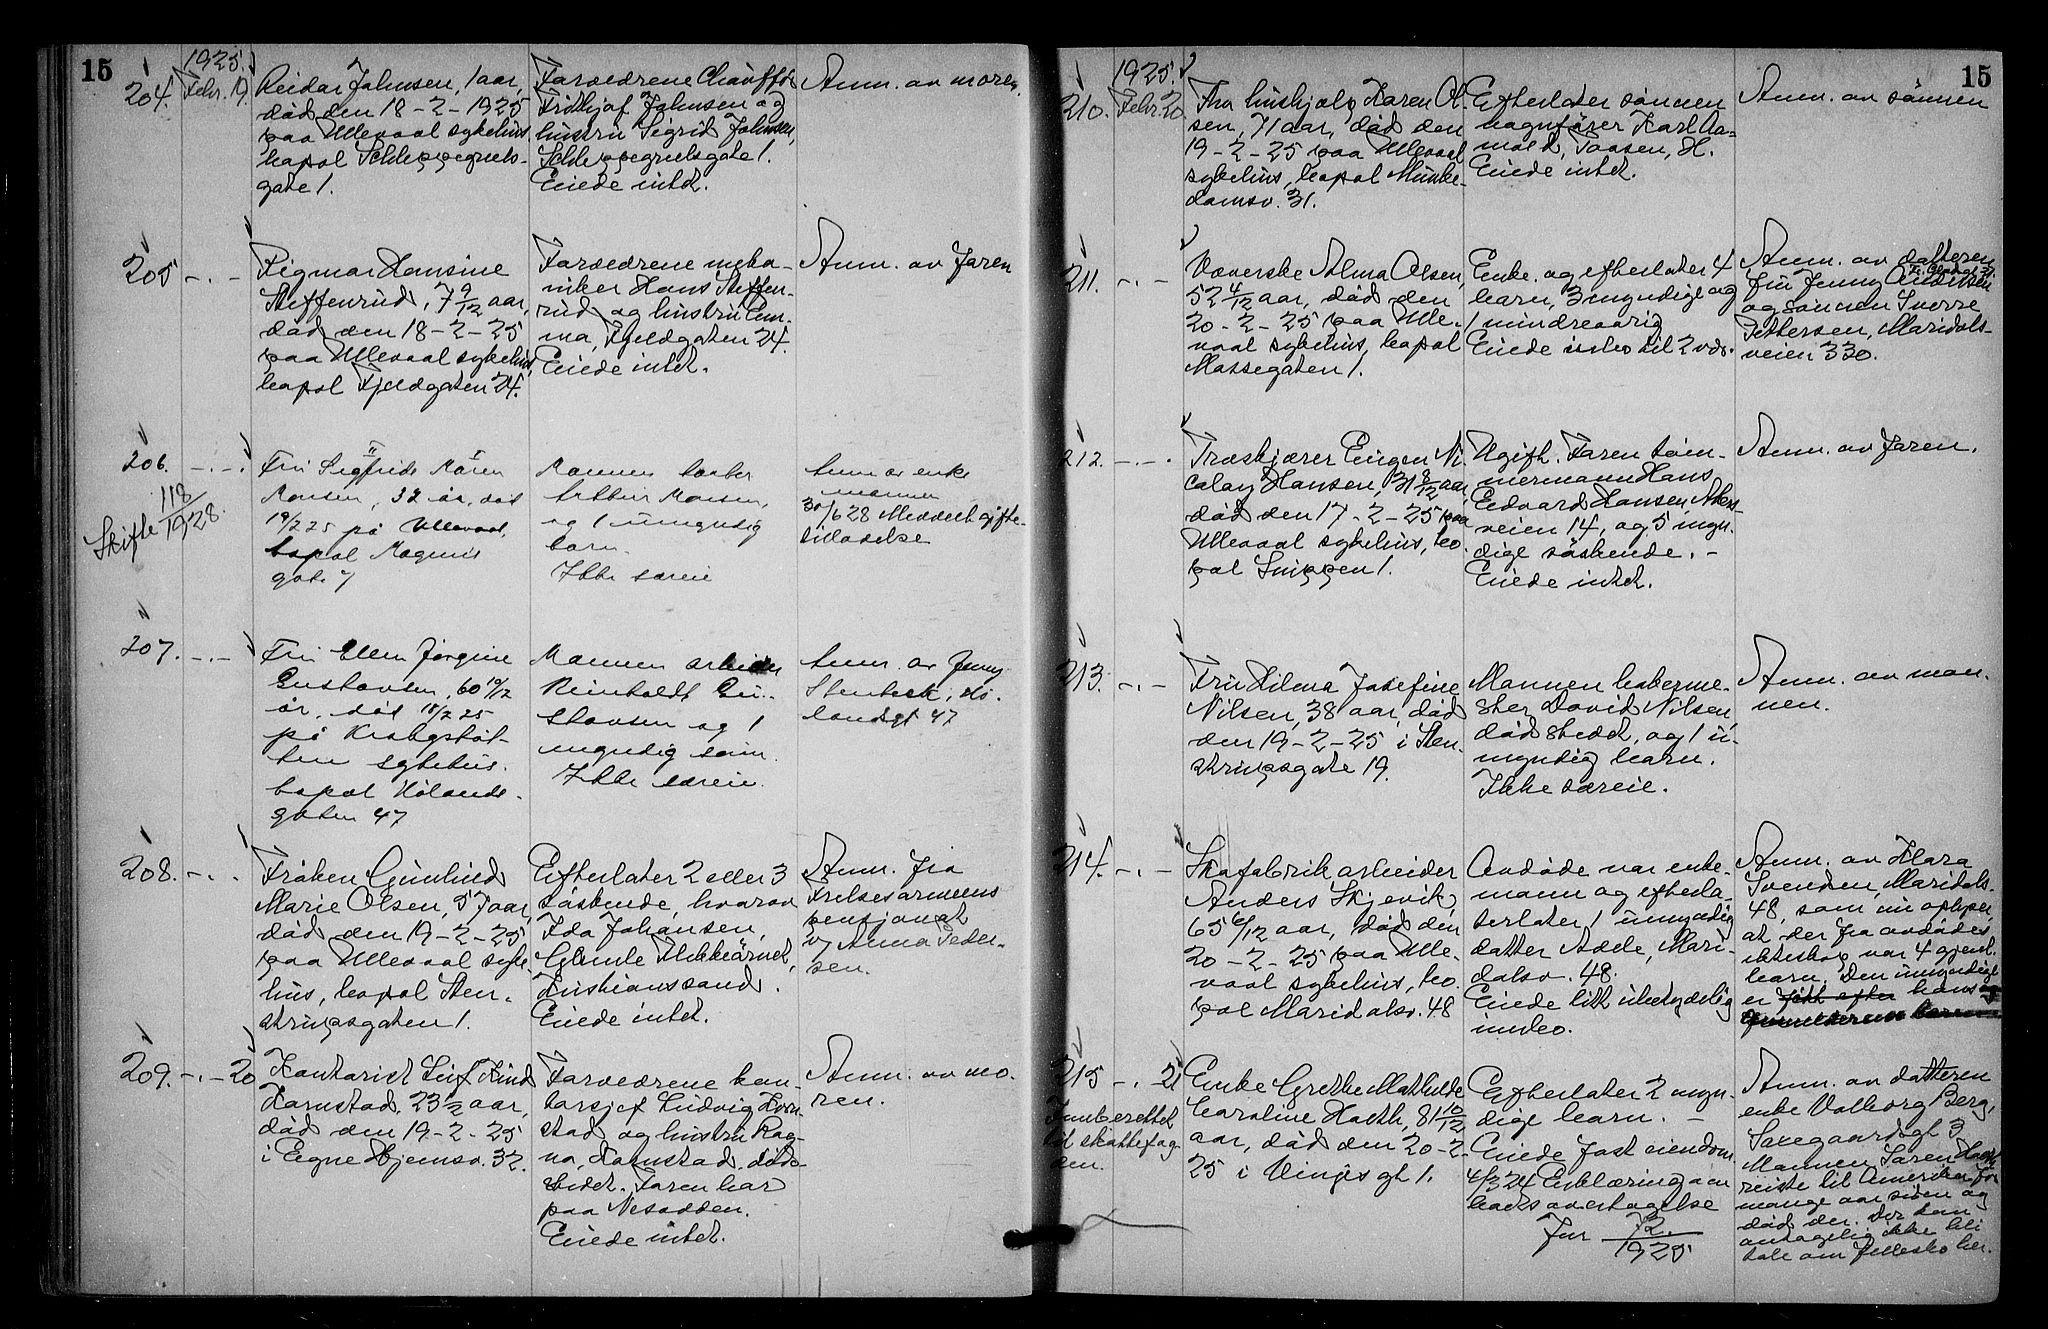 15
1925.
204.
Febr. 19.
Reidar Johnsen, 1 aar,
död den 18-2-1925
paa Ullevaal sykehus,
bopal Schleppegrels-
gate 1.
Forældrene Chaufför
Fridtjof Johnsen og
hustru Sigrid Johnsen,
Schleppegrelsgate 1.
Eiede intet.
Anm. av moren.
205 -.-
Hansine
Steffenrud, 7 9/12 aar,
död den 18-2-25
paa Ullevaal sykehus,
bopal Fjeldgaten 24.
Forældrene meka-
niker Hans Steffen-
rud og hustru Em-
ma, Fjeldgaten 24.
Eiede intet.
Anm. av faren
206. -.-
Skifte 118/1928.
Fru Sigfride Karen
Monsen, 32 år, död
19/2 25 på Ullevaal,
bopal Magnus
gate 7
Mannen
Arthur Monsen,
og 1 umyndig
barn.
Ikke særeie
Anm av enke
mannen
30/6 28 Meddelt gifte-
tilladelse
207. -.-
Fru Ellen Jörgine
Gustavsen, 60 10/12
år, död 18/2 25
på Krohgstöt-
ten sykehus.
bopal Hölands-
gaten 47
Mannen arbeider
Reinholdt Gu-
stavsen og 1
myndig sön.
Ikke særeie.
Anm. av Jenny
Stenbeck, Hö-
landsgt 47
208. -.-
Fröken Gunhild
Marie Olsen, 57 aar,
död den 19-2-25
paa Ullevaal syke-
hus, bopal Sten-
strupsgaten 1.
Efterlater 2 eller 3
söskende, hvorav
Ida Johansen,
Kristianssand.
Eiede intet.
Anm. fra
Frelsesarmeens
v/ Anna Peder-
sen.
209. -.- 20
Kontorist Leif
Harnstad, 23 1/2 aar,
död den 19-2-25
i Egne Hjemsv. 32.
Forældrene kon-
torsjef Ludvig Horn-
stad og hustru Rag-
na, Harnstad, döds-
stedet. Faren bor
paa Nesodden.
Eiede intet.
Anm. av mo-
ren.
15
1925.
210.
Febr. 20.
Fra hushjælp Karen Ol-
sen, 71 aar, död den
19-2-25 paa Ullevaal
sykehus, bopal Munke-
damsv. 31.
Efterlater sönnen
vognförer Karl Aa-
mold, Taasen, H.
Eiede intet.
Anm. av sönnen
211. -.-
Væverske Alma Olsen,
52 4/12 aar, död den
20-2-25 paa Ulle-
vaal sykehus, bopal
Mossegaten 1.
Enke og efterlater 4
barn, 3 myndige og
1 mindreaarig
Eiede indbo til 2 vær.
Anm. av datteren
fru Jenny
og sönnen Sverre
Pettersen, Maridals-
veien 330.
212. -.-
Træskjærer Eugen Ni-
colay Hansen, 31 8/12 aar,
död den 17-2-25 paa
Ullevaal sykehus, bo-
pal Snippen 1.
Ugift. Faren töm-
mermann Hans
Edvard Hansen, Akers-
veien 14, og 5 myn-
dige söskende. -
Eiede intet.
Anm. av faren.
213. -.-
Fru Hilma Josefine
Nilsen, 38 aar, död
den 19-2-25 i Sten-
strupsgate 19.
Mannen bakerme-
ster David Nilsen,
dödstedet, og 1 u-
myndig barn.
Ikke særeie.
Anm. av man-
nen.
214. -.-
Skofabrikarbeider
Anders Skjevik,
65 6/12 aar, död den
20-2-25 paa Ulle-
vaal sykehus, bo-
pal Maridalsv. 48
Avdöde var enke-
mann og efterla-
terlater 1 umyndig
datter Adele, Mari-
dalsv. 48.
Eiede litt ubetydelig
indbo.
Anm. av Klara
Svendsen, Maridals-
48, som nu oplyser,
at der fra avdödes
ekteskap var 4 gjenl.
barn. Den umyndige
er hans
215 -.- 21
Innberettet
til skattefog-
den.
Enke Grethe Mathilde
Caroline Hadth, 81 10/12
aar, död den 20-2-
25 i Vinjes gt 1.
Efterlater 2 myn-
dige barn. -
Eiede fast eiendom
4/3 24 Erklæring om
boets overtagelse
Jnr 72/1925
Anm. av datteren
enke Valborg Berg,
Saxegaardsgt 3
Mannen Sören
reiste til Amerika for
mange aar siden og
död der. Der kan
antagelig ikke bli
tale om fellesbo her.